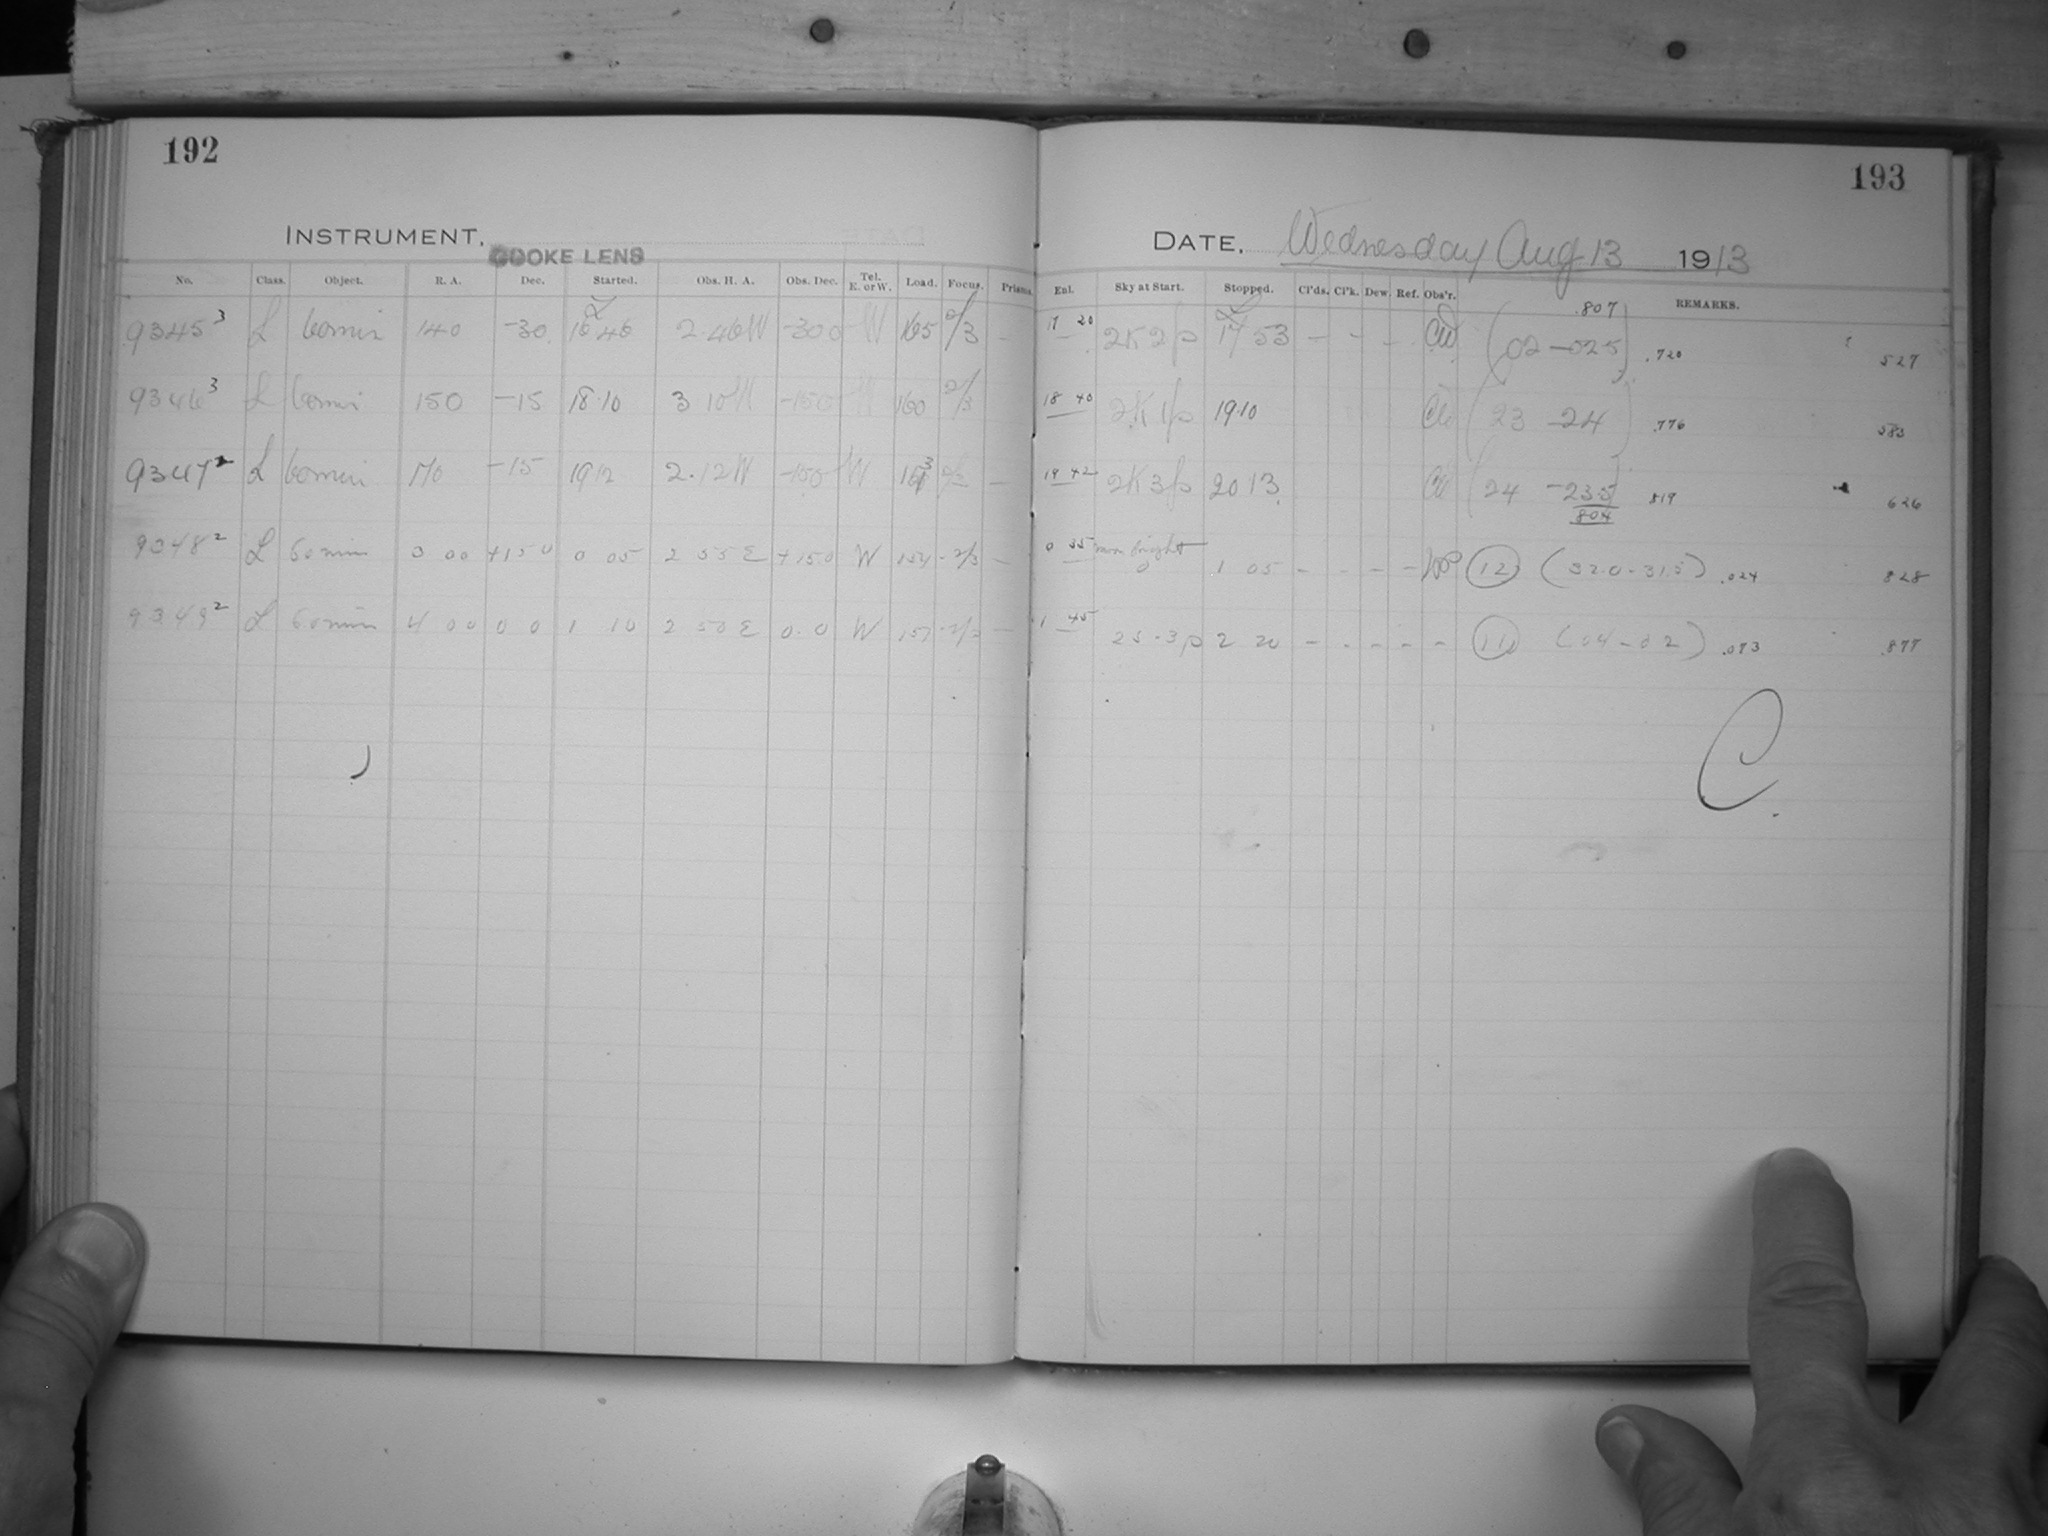 192
193
INSTRUMENT. COOKE LENS
DATE. Wednesday Aug 13 1913
No. Class. Object. R. A. Dec. Started. Obs. H. A. Obs. Dec. Tel. E. or W. Load. Focus. Prisms. Enl. Sky at Start. Stopped. Cl'ds. Cl'k. Dew. Ref. Obs'r. REMARKS.
.807
9345 3 L 60 min 14 0 -30 16 46 2.46 W -30 0 W 165 2/3 - 17 20 2K2p 17 53 - - - CW (02 -025) .720 527
9346 3 L 60 min 15 0 -15 18.10 3 10 W -15 0 W 160 2/3 18 40 2K1p 19.10 CW (23 -24) .776 583
9347 2 L 60 min 17 0 -15 19 12 2.12 W -15 0 W 2/3 - 19 42 2K3p 20 13 CW (24 -23.5) 819 626
804
9348 2 L 60 min 3 00 +15 0 0 05 2 55 E +15.0 W 154 -2/3 - 0 35 moon bright 1 05 - - - - (12) (32.0-31.5) .024 828
9349 2 L 60 min 4 00 0 0 1 10 2 50 E 0.0 W 157 -2/3 - 1 45 2S-3p 2 20 - - - - - (11) (04-02) .073 .877
C.